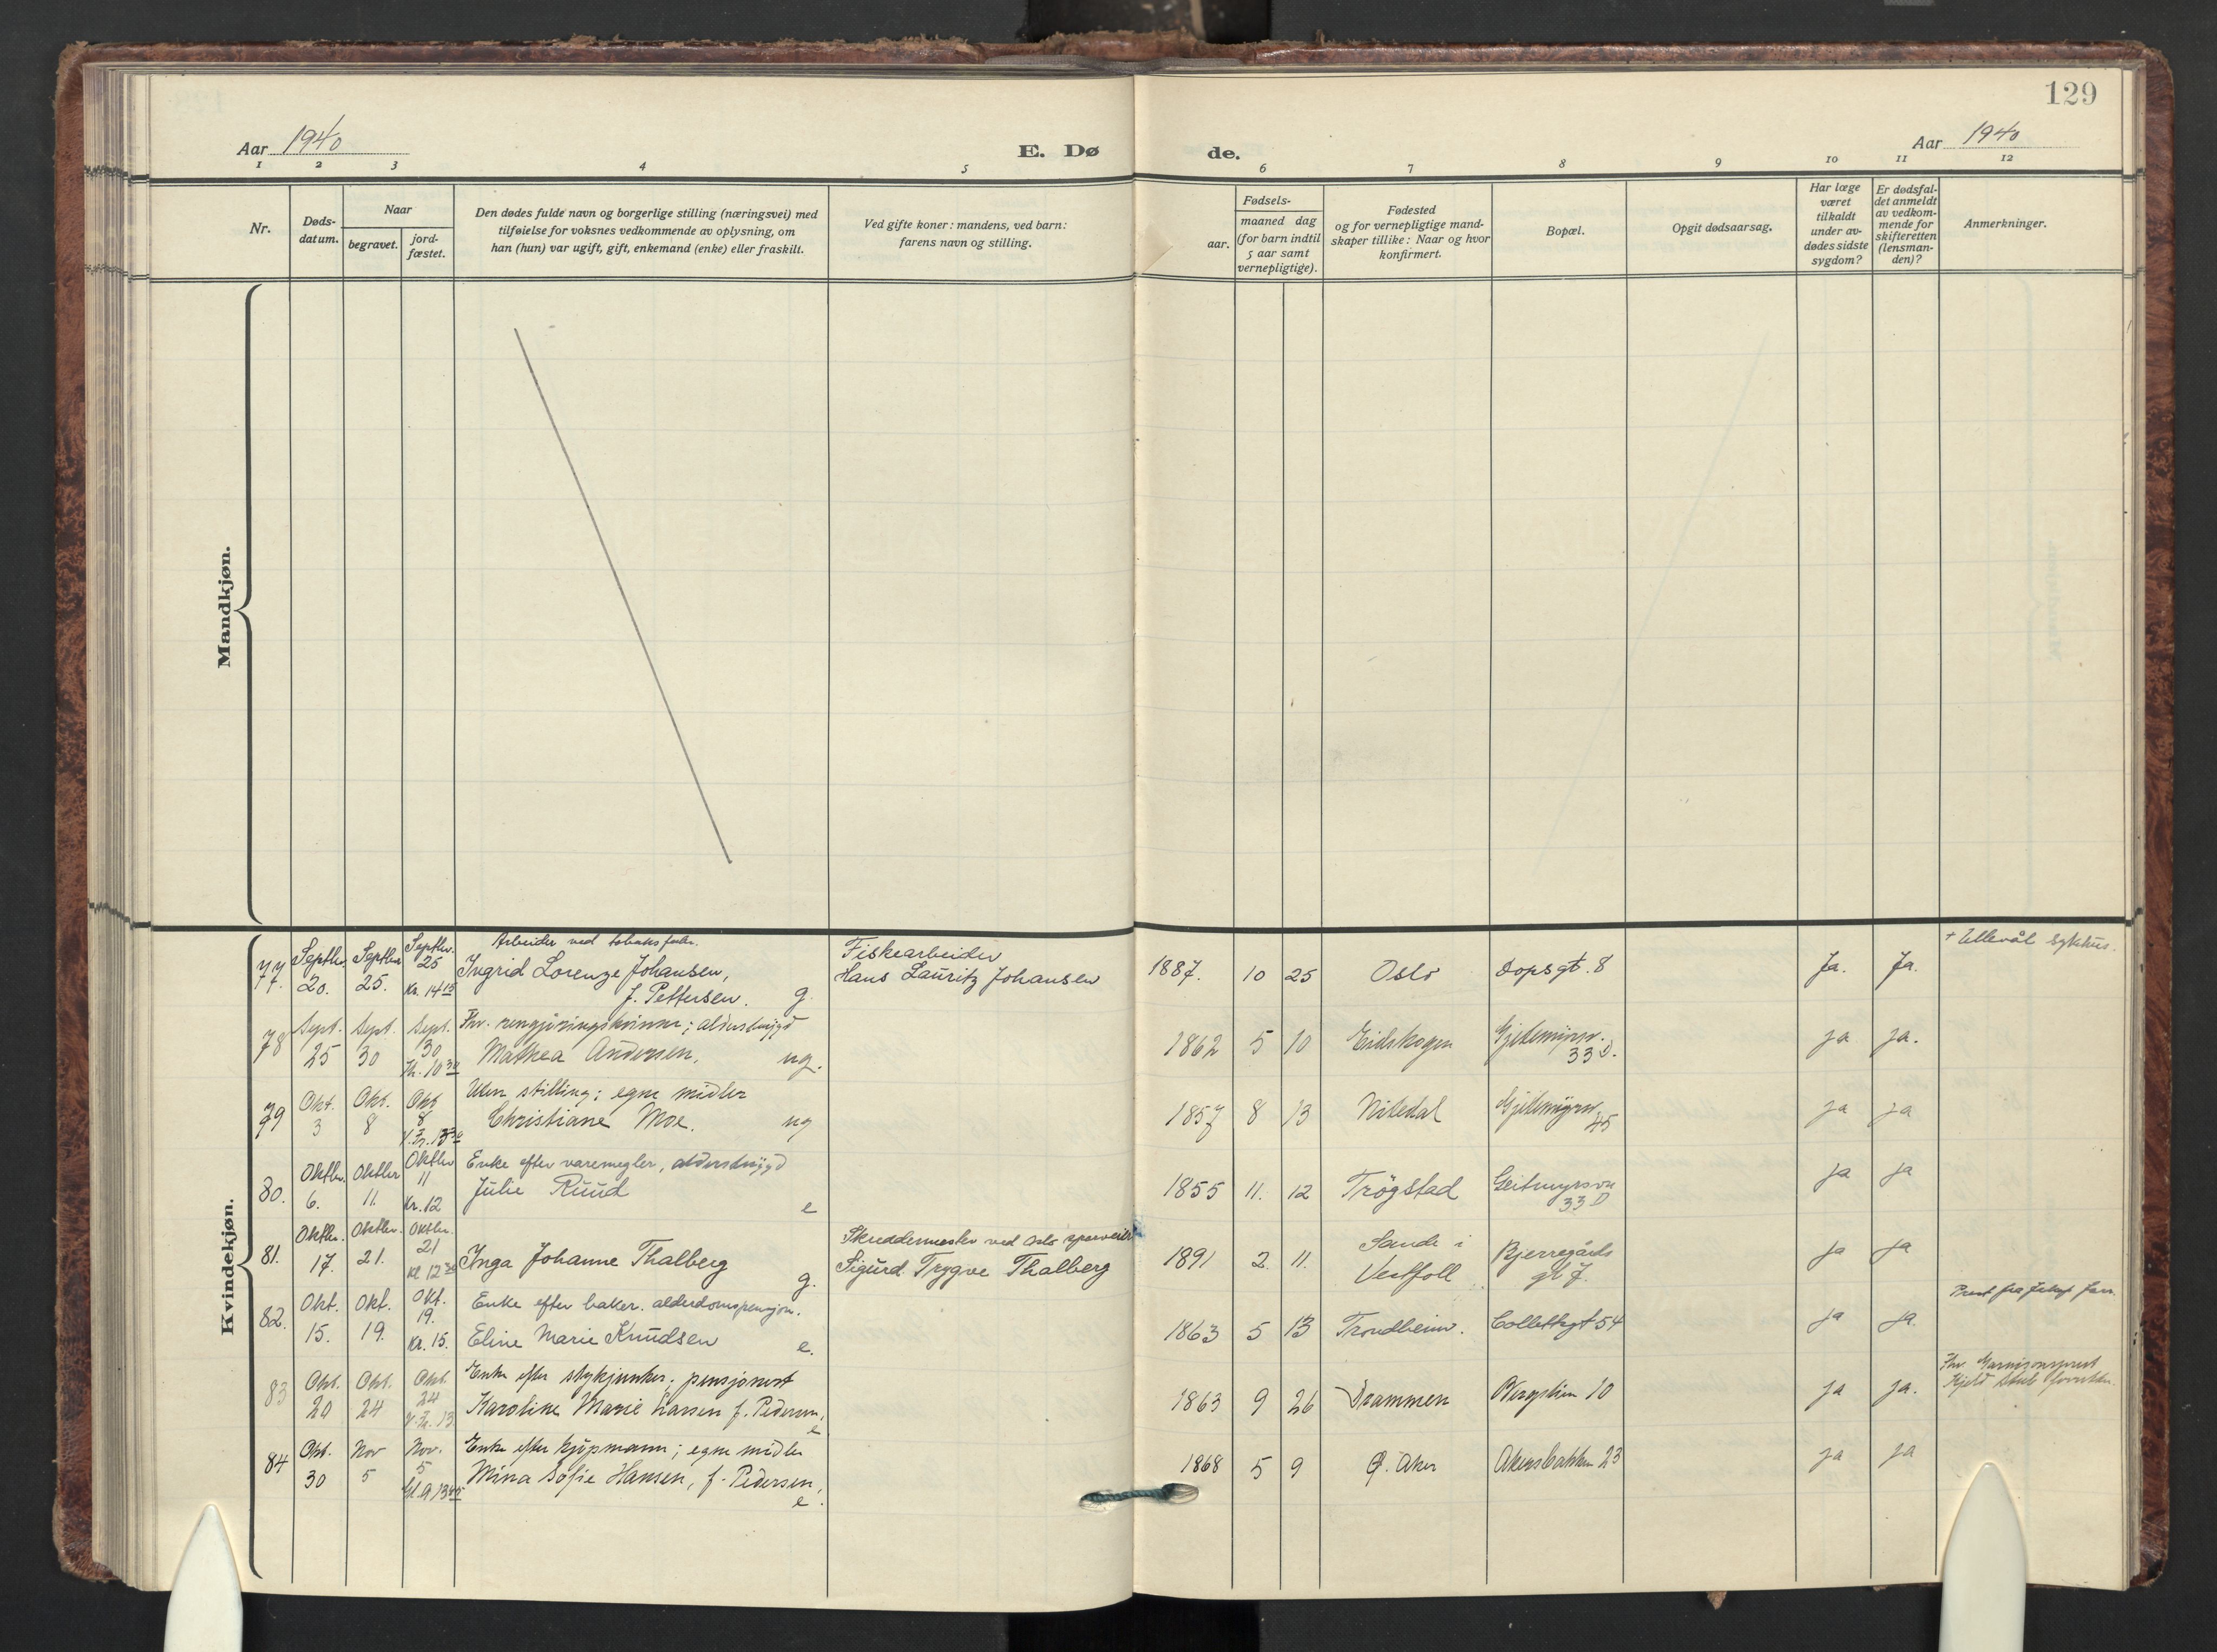 129
Aar 1940
E. Døde.
Aar 1940
1 2 3 4 5 6 7 8 9 10 11 12
Nr.
Døds-
datum.
Naar
begravet.
jord-
fæstet.
Den dødes fulde navn og borgerlige stilling (næringsvei) med
tilføielse for voksnes vedkommende av oplysning, om
han (hun) var ugift, gift, enkemand (enke) eller fraskilt.
Ved gifte koner: mandens, ved barn:
farens navn og stilling.
Fødsels-
aar.
maaned dag
(for barn indtil
5 aar samt
vernepligtige).
Fødested
og for vernepligtige mand-
skaper tillike: Naar og hvor
konfirmert.
Bopæl.
Opgit dødsaarsag.
Har læge
været
tilkaldt
under av-
dødes sidste
sygdom?
Er dødsfal-
det anmeldt
av vedkom-
mende for
skifteretten
(lensman-
den)?
Anmerkninger.
Mandkjøn.
Kvindekjøn.
77. Septbr. 20. Septbr. 25. Septbr. 25 Kr. 14 15
Arbeider ved tobaksfabr.
Ingrid Lorenze Johansen,
f. Pettersen. g.
Fiskearbeider
Hans Lauritz Johansen
1887. 10 25 Oslo Dopsgt. 8 Ja. Ja.
+ Ullevål sykehus.
78 Sept. 25 Sept. 30 Sept. 30 10 30
Fhv. rengjøringskvinne; alderstrygd
Mathea Andersen, ug.
1862 5 10 Eidskogen Gjetemyrsv. 33 D. ja ja.
79 Okt. 3 Okt. 8 Okt 8 V.Fr. 13 30
Uten stilling; egne midler
Christiane Moe. ug
1857 8 13 Nitedal Gjetemyrsv. 45 ja ja
80. Oktbr. 6. Oktbr 11. Oktbr 11 Kr. 12
Enke efter varemegler, alderstrygd
Julie Ruud e
1855 11. 12 Trøgstad Geitmyrsvn 33 D ja ja
81. Oktbr. 17. Oktbr. 21. Oktbr. 21 Kl 12 30
Inga Johanne Thalberg g.
Skreddermester ved Oslo sporveier
Sigurd Trygve Thalberg
1891 2. 11. Sande i
Vestfoll
Bjerregårds
gt 7. ja ja
82. Okt. 15. Okt. 19. Okt. 19. Kr. 15.
Enke efter baker. alderdomspensjon.
Eline Marie Knudsen e.
1863 5 13 Trondheim. Collettsgt 54 ja ja.
83 Okt. 20 Okt. 24 Okt. 24 V.Fr. 13
Enke efter stykjunker; pensjonert
Karoline Marie Larsen f. Pedersen, e
1863 9 26 Drammen Bergslien 10 ja ja.
Fhv. Garnisonsprest
84 Okt. 30 Nov 5 Nov. 5 13 45
Enke efter kjøpmann; egne midler
Mina Sofie Hansen, f. Pedersen, e.
1868 5 9 Ø. Aker Akersbakken 23 ja ja